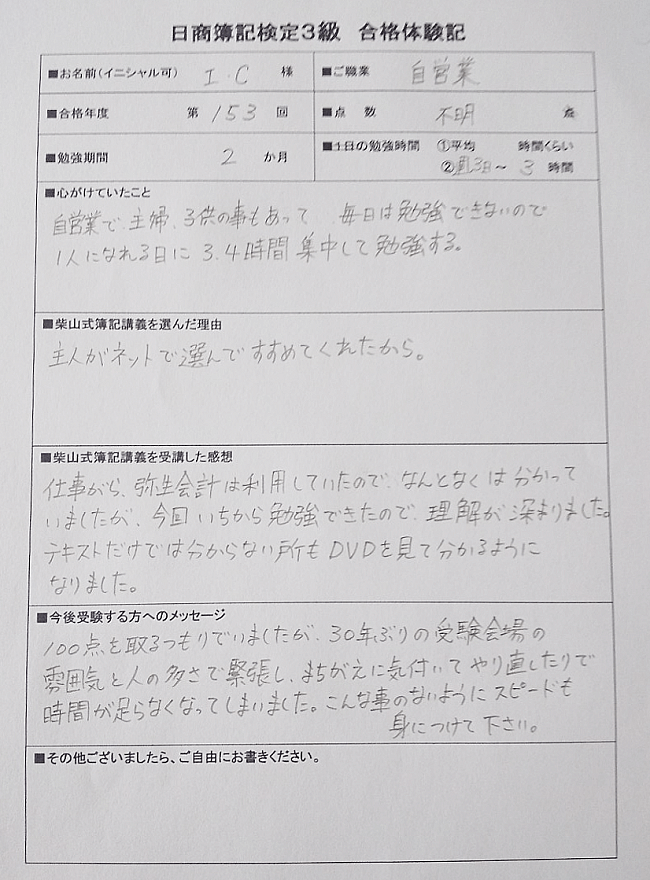 日商簿記検定3級 合格体験記
■お名前(イニシャル可) I.C 様 ■ご職業 自営業
■合格年度 第153回 ■点数 不明 点
■勉強期間 2 か月 ■1日の勉強時間 ①平均 時間くらい
②週3日~ 3 時間
■心がけていたこと
自営業で、主婦、子供の事もあって、毎日は勉強できないので
1人になれる日に 3.4時間 集中して勉強する。
■柴山式簿記講義を選んだ理由
主人がネットで選んですすめてくれたから。
■柴山式簿記講義を受講した感想
仕事がら、弥生会計は利用していたので、なんとなくは分かって
いましたが、今回いちから勉強できたので、理解が深まりました。
テキストだけでは分からない所もDVDを見て分かるように
なりました。
■今後受験する方へのメッセージ
100点を取るつもりでいましたが、30年ぶりの受験会場の
雰囲気と人の多さで緊張し、まちがえに気付いてやり直したりで
時間が足らなくなってしまいました。こんな事のないようにスピードも
身につけて下さい。
■その他ございましたら、ご自由にお書きください。